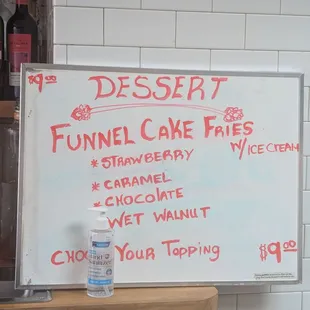 $9.00
DESSERT
FUNNEL CAKE FRIES
W/ ICE CREAM
* STRAWBERRY
* CARAMEL
* CHOCOLATE
* WET WALNUT
YOUR TOPPING
$9.00